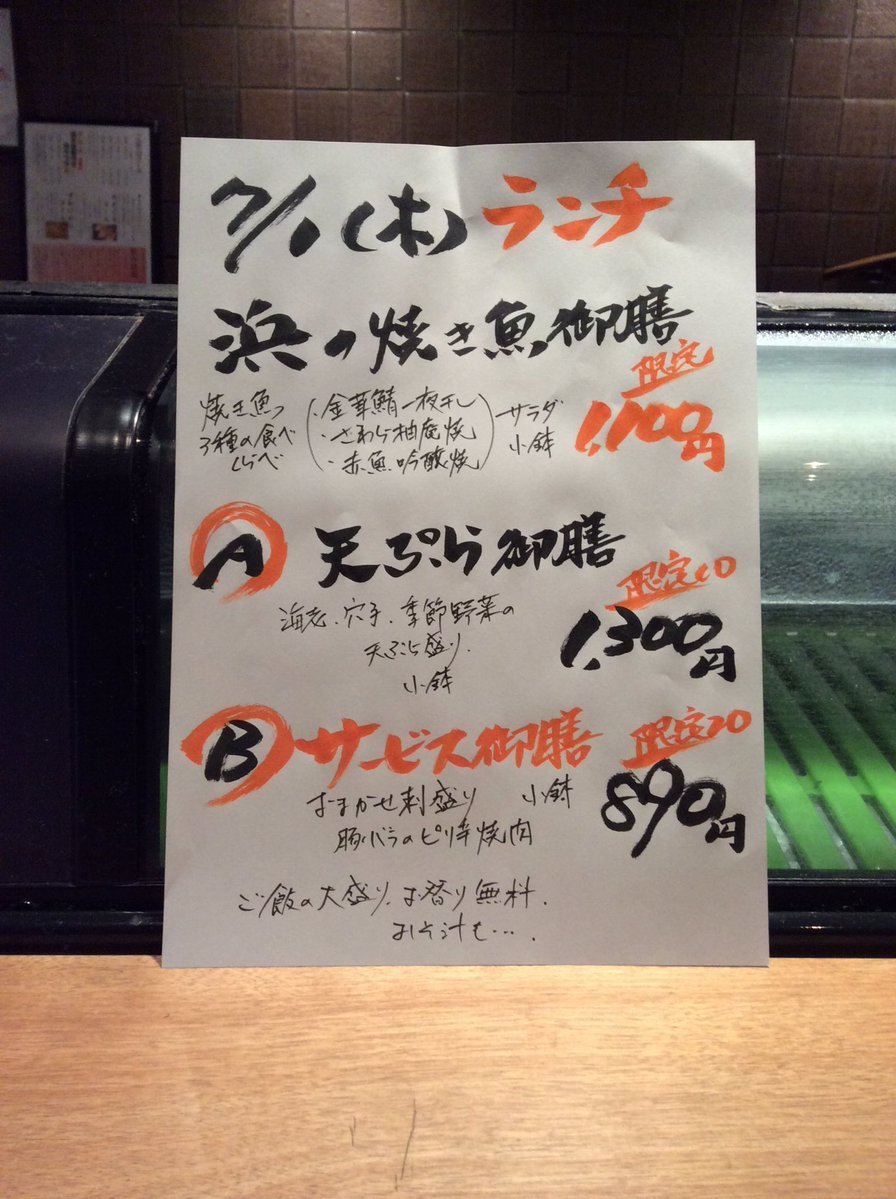 7/1(木)ランチ
浜の焼き魚御膳
限定
1,100円
焼き魚
3種の食べ
くらべ
・金華鯖一夜干し
・さわら柚庵焼
・赤魚吟醸焼
サラダ
小鉢
A 天ぷら御膳
限定10
海老、穴子、季節野菜の
天ぷら盛り、
小鉢
1,300円
B サービス御膳 限定20
おまかせ刺盛り 小鉢
豚バラのピリ辛焼肉
890円
ご飯の大盛り、お替り無料、
おみそ汁も・・・、